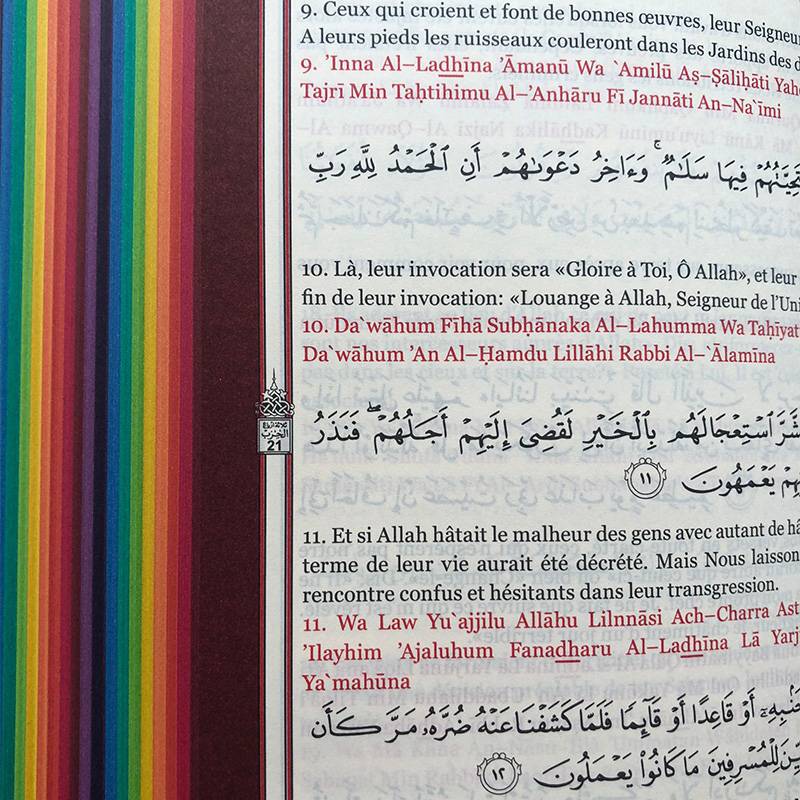 9. Ceux qui croient et font de bonnes œuvres, leur Seigneur
A leurs pieds les ruisseaux couleront dans les Jardins des d
9. 'Inna Al–Ladhīna 'Āmanū Wa `Amilū Aş–Şāliĥāti Yahd
Tajrī Min Taĥtihimu Al–'Anhāru Fī Jannāti An–Na`īmi
فِيهَا سَلَـٰمٌۚ وَءَاخِرُ دَعْوَىٰهُمْ أَنِ ٱلْحَمْدُ لِلَّهِ رَبِّ
10. Là, leur invocation sera «Gloire à Toi, Ô Allah», et leur
fin de leur invocation: «Louange à Allah, Seigneur de l'Uni
10. Da`wāhum Fīhā Subĥānaka Al–Lahumma Wa Taĥīyat
Da`wāhum 'An Al–Ĥamdu Lillāhi Rabbi Al–`Ālamīna
ٱسْتِعْجَالَهُم بِٱلْخَيْرِ لَقُضِىَ إِلَيْهِمْ أَجَلُهُمْۖ فَنَذَرُ
الحزب
21
يَعْمَهُونَ ١١
11. Et si Allah hâtait le malheur des gens avec autant de hâ
terme de leur vie aurait été décrété. Mais Nous laisson
rencontre confus et hésitants dans leur transgression.
11. Wa Law Yu`ajjilu Allāhu Lilnnāsi Ach–Charra Ast
'Ilayhim 'Ajaluhum Fanadharu Al–Ladhīna Lā Yarj
Ya`mahūna
أَوْ قَاعِدًا أَوْ قَآئِمًا فَلَمَّا كَشَفْنَا عَنْهُ ضُرَّهُۥ مَرَّ كَأَن
لِلْمُسْرِفِينَ مَا كَانُوا۟ يَعْمَلُونَ ١٢